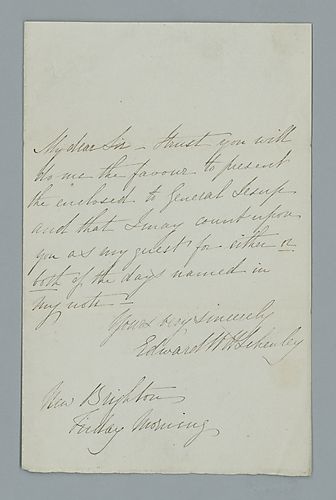 My dear Sir – I trust you will
do me the favour to present
the enclosed to General Jesup
and that I may count upon
you as my guest for either or
both of the days named in
my note –
Yours very sincerely
Edward W H Schenley
New Brighton
Friday Morning